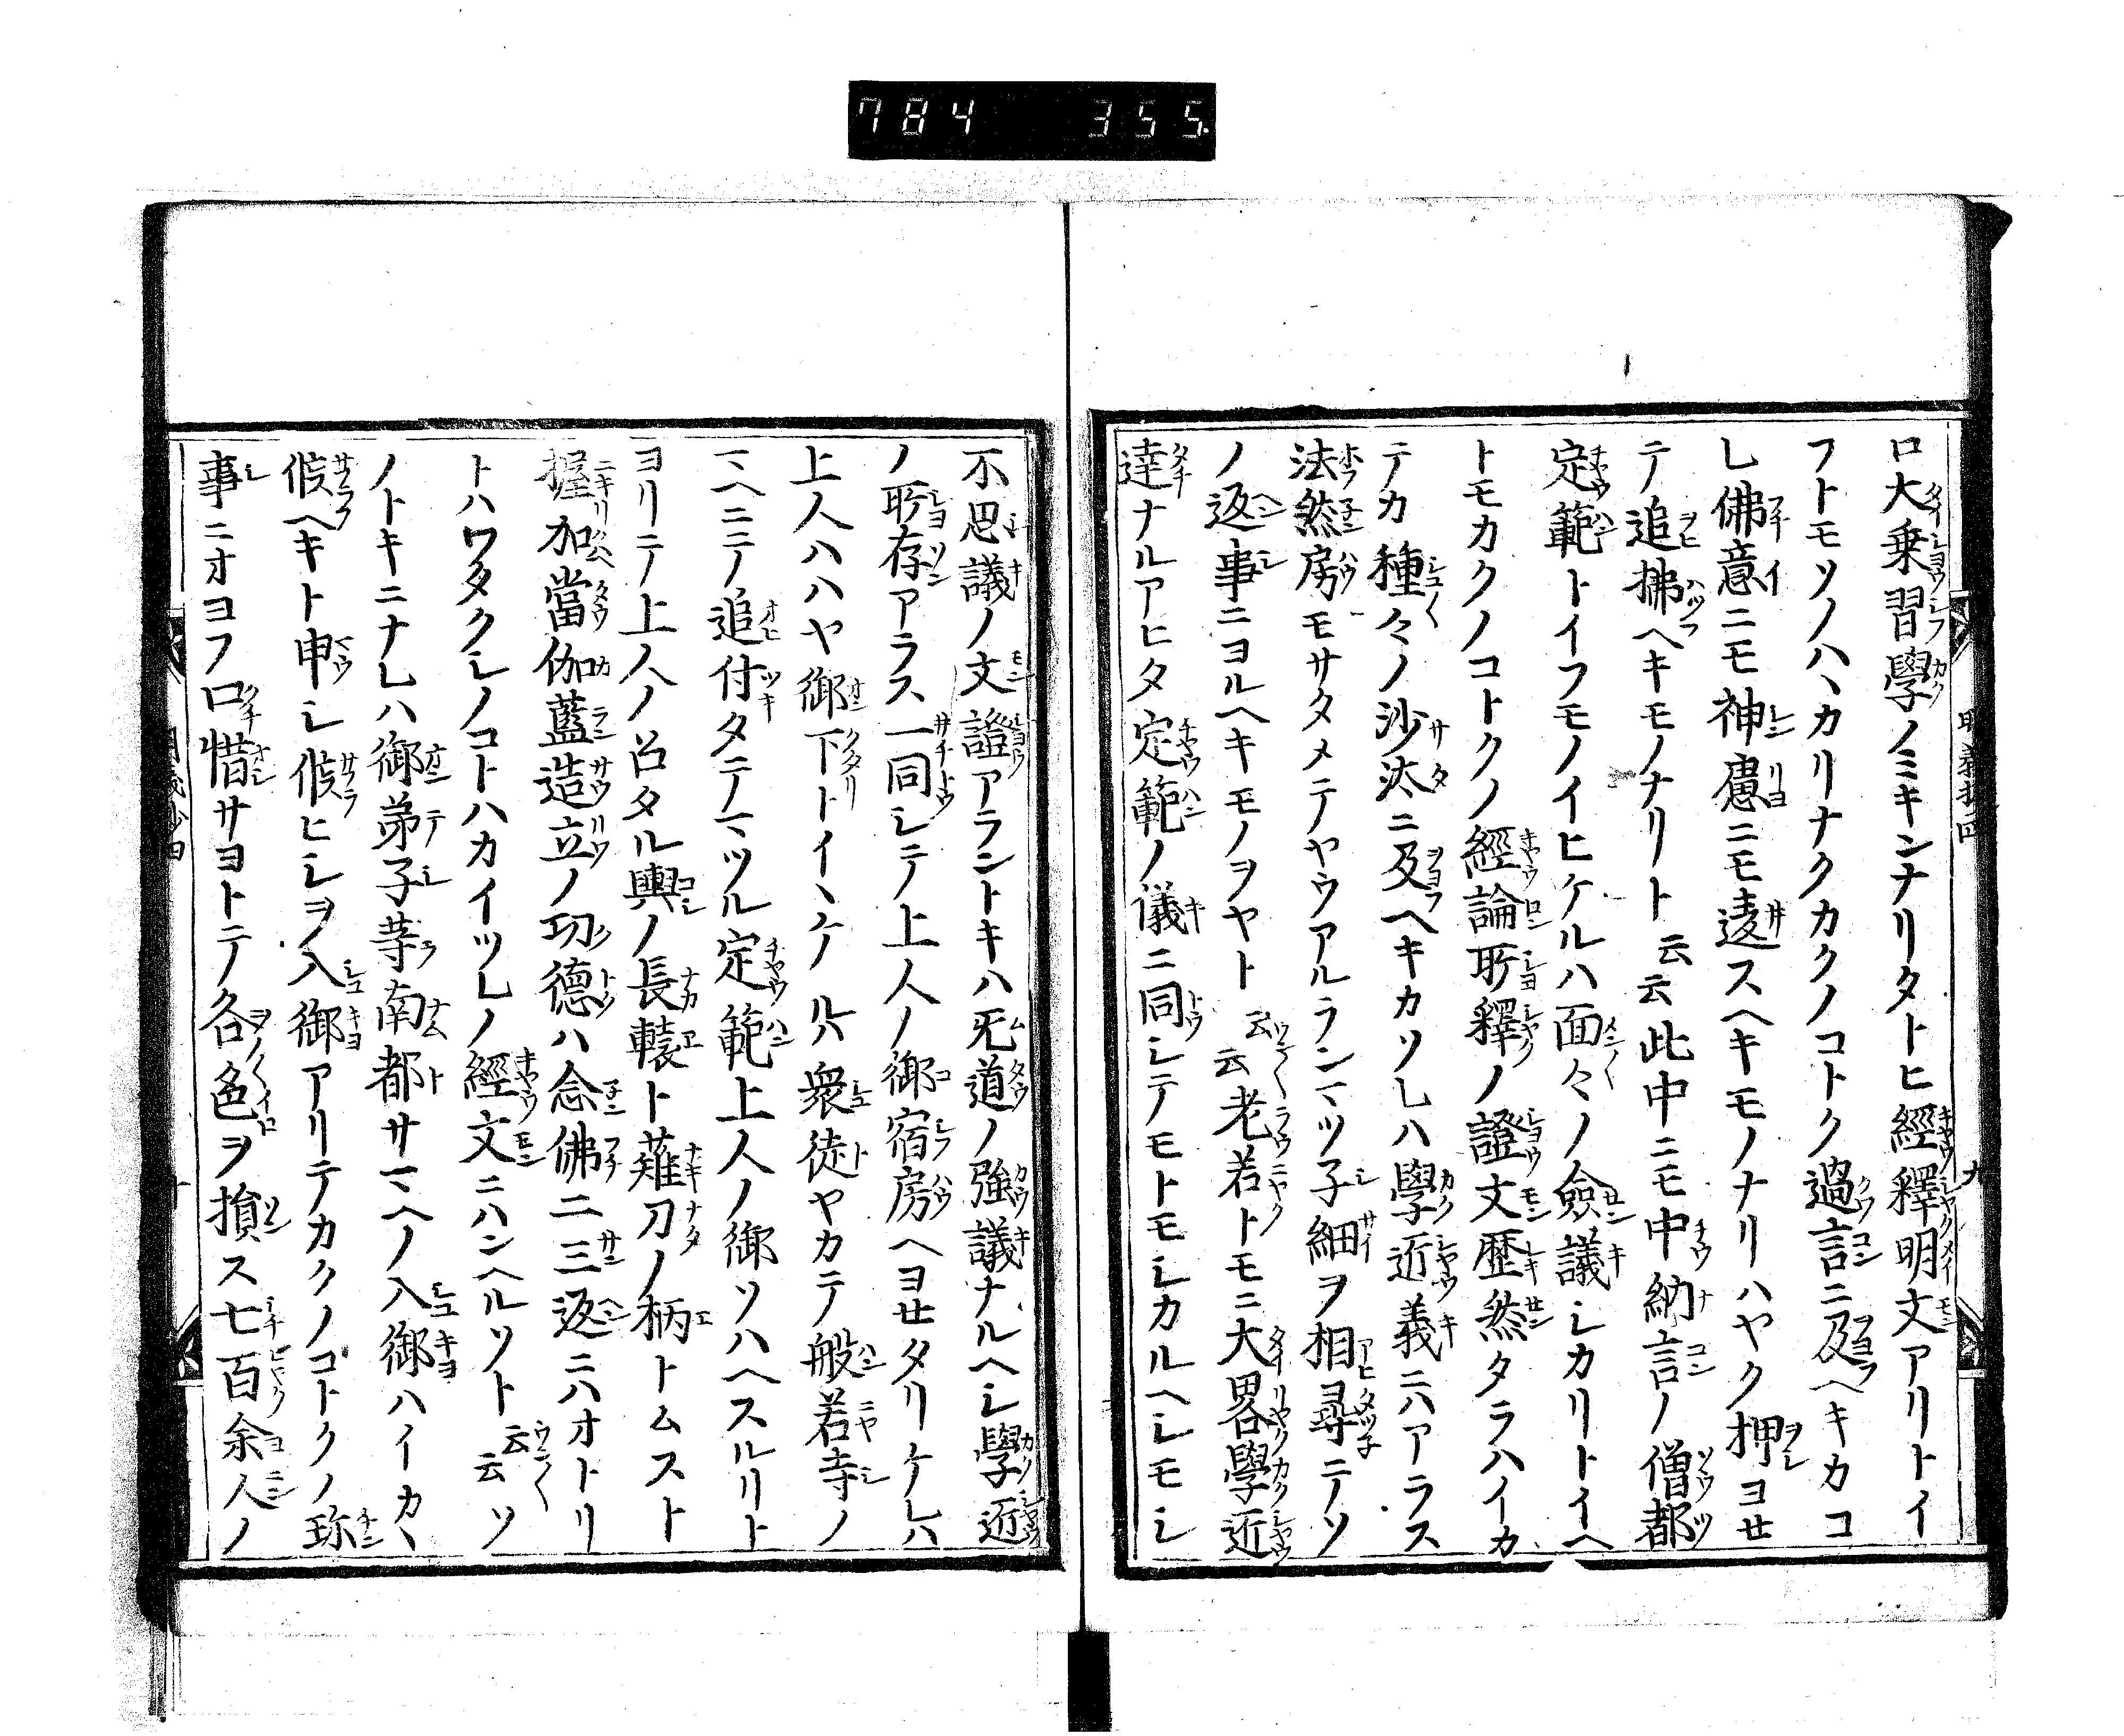 784 355
ロ大乗習學ノミキンナリタトヒ經釋明文アリトイ
フトモソノハヽカリナクカクノコトク過言ニ及ヘキカコ
レ佛意ニモ神慮ニモ逵スヘキモノナリハヤク押ヨせ
テ追拂ヘキモノナリト云云此中ニモ中納言ノ僧都
定範トイフモノイヒケルハ面々ノ僉議シカリトイヘ
トモカクノコトクノ經論所釋ノ證文歴然タラハイカ
テカ種々ノ沙汰ニ及ヘキカソレハ學近義ニハアラス
法然房モサタメテヤウアルランマツ子細ヲ相尋テソ
ノ返事ニヨルヘキモノヲヤト云云老若トモニ大畧學近
達ナルアヒタ定範ノ儀ニ同シテモトモシカルヘシモシ
不思議ノ文證アラントキハ旡道ノ強議ナルヘシ學近
ノ所存アラス一同シテ上人ノ御宿房ヘヨせタリケレハ
上人ハハヤ御下トイヽケレハ衆徒ヤカテ般若寺ノ
マヘニテ追付タテマツル定範上人ノ御ソハヘスルリト
ヨリテ上人ノ召タル輿ノ長轅ト薙刀ノ柄トムスト
握加當伽藍造立ノ功德ハ念佛二三返ニハオトリ
トハワタクシノコトハカイツレノ經文ニハンヘルソト云云ソ
ノトキニナレハ御弟子等南都サマヘノ入御ハイカヽ
候ヘキト申シ候ヒシヲ入御アリテカクノコトクノ珎
事ニオヨフ口惜サヨトテ各色ヲ損ス七百余人ノ